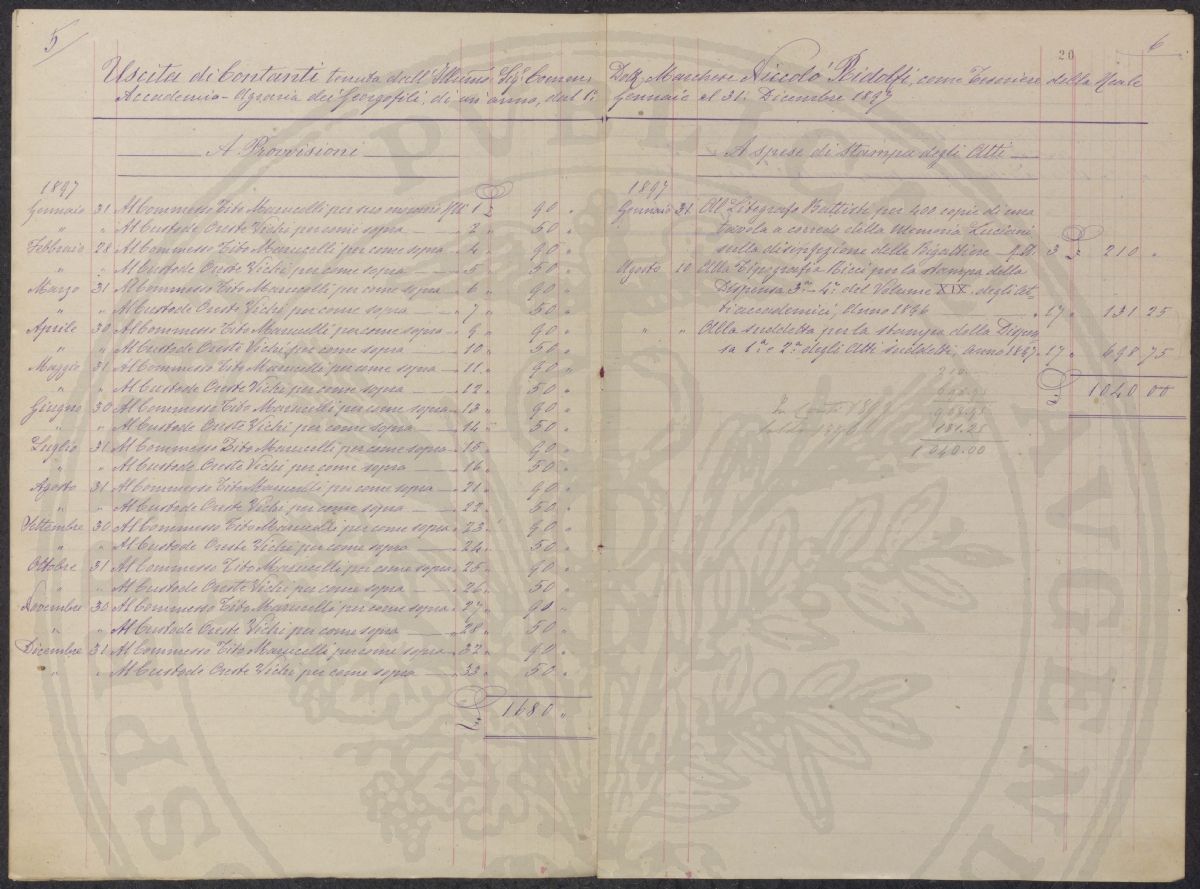 5
Uscita di Contanti tenuta dall'Illmo Sigr Comm.
Accademia Agraria dei Georgofili, di un'anno, dal 1:
A Provvisioni
1897
Gennaio 31 Al Commesso Tito Marucelli per suo onorario 1 £ 90 "
" " Al Custode Oreste Vichi per come sopra " 2 " 50 "
Febbraio 28 Al Commesso Tito Marucelli per come sopra " 4 " 90 "
" " Al Custode Oreste Vichi per come sopra " 5 " 50 "
Marzo 31 Al Commesso Tito Marucelli per come sopra " 6 " 90 "
" " Al Custode Oreste Vichi per come sopra " 7 " 50 "
Aprile 30 Al Commesso Tito Marucelli per come sopra " 9 " 90 "
" " Al Custode Oreste Vichi per come sopra " 10 " 50 "
Maggio 31 Al Commesso Tito Marucelli per come sopra " 11 " 90 "
" " Al Custode Oreste Vichi per come sopra " 12 " 50 "
Giugno 30 Al Commesso Tito Marucelli per come sopra " 13 " 90 "
" " Al Custode Oreste Vichi per come sopra " 14 " 50 "
Luglio 31 Al Commesso Tito Marucelli per come sopra " 15 " 90 "
" " Al Custode Oreste Vichi per come sopra " 16 " 50 "
Agosto 31 Al Commesso Tito Marucelli per come sopra " 21 " 90 "
" " Al Custode Oreste Vichi per come sopra " 22 " 50 "
Settembre 30 Al Commesso Tito Marucelli per come sopra " 23 " 90 "
" " Al Custode Oreste Vichi per come sopra " 24 " 50 "
Ottobre 31 Al Commesso Tito Marucelli per come sopra " 25 " 90 "
" " Al Custode Oreste Vichi per come sopra " 26 " 50 "
Novembre 30 Al Commesso Tito Marucelli per come sopra " 27 " 90 "
" " Al Custode Oreste Vichi per come sopra " 28 " 50 "
Dicembre 31 Al Commesso Tito Marucelli per come sopra " 32 " 90 "
" " Al Custode Oreste Vichi per come sopra " 33 " 50 "
£ 1680 "
20
6
Dott. Marchese Niccolò Ridolfi, come Tesoriere della Reale
Gennaio al 31: Dicembre 1897
A spese di stampa degli Atti
1897
Gennaio 31 Al Litografo Battisti per 400 copie di una
tavola a corredo della Memoria Luciani
sulla disinfezione delle Bigattiere 3 £ 210 "
Agosto 10 Alla Tipografia Ricci per la stampa della
Dispensa 3a 4a del Volume XIX degli At-
ti accademici, Anno 1896 " 17 " 131.25
" " Alla suddetta per la stampa della Dispen
sa 1a e 2a degli Atti suddetti, Anno 1897 " 17 " 698.75
£ 1040.00
210
698.75
908.75
131.25
1040.00
PVBLICAE
AVGEN